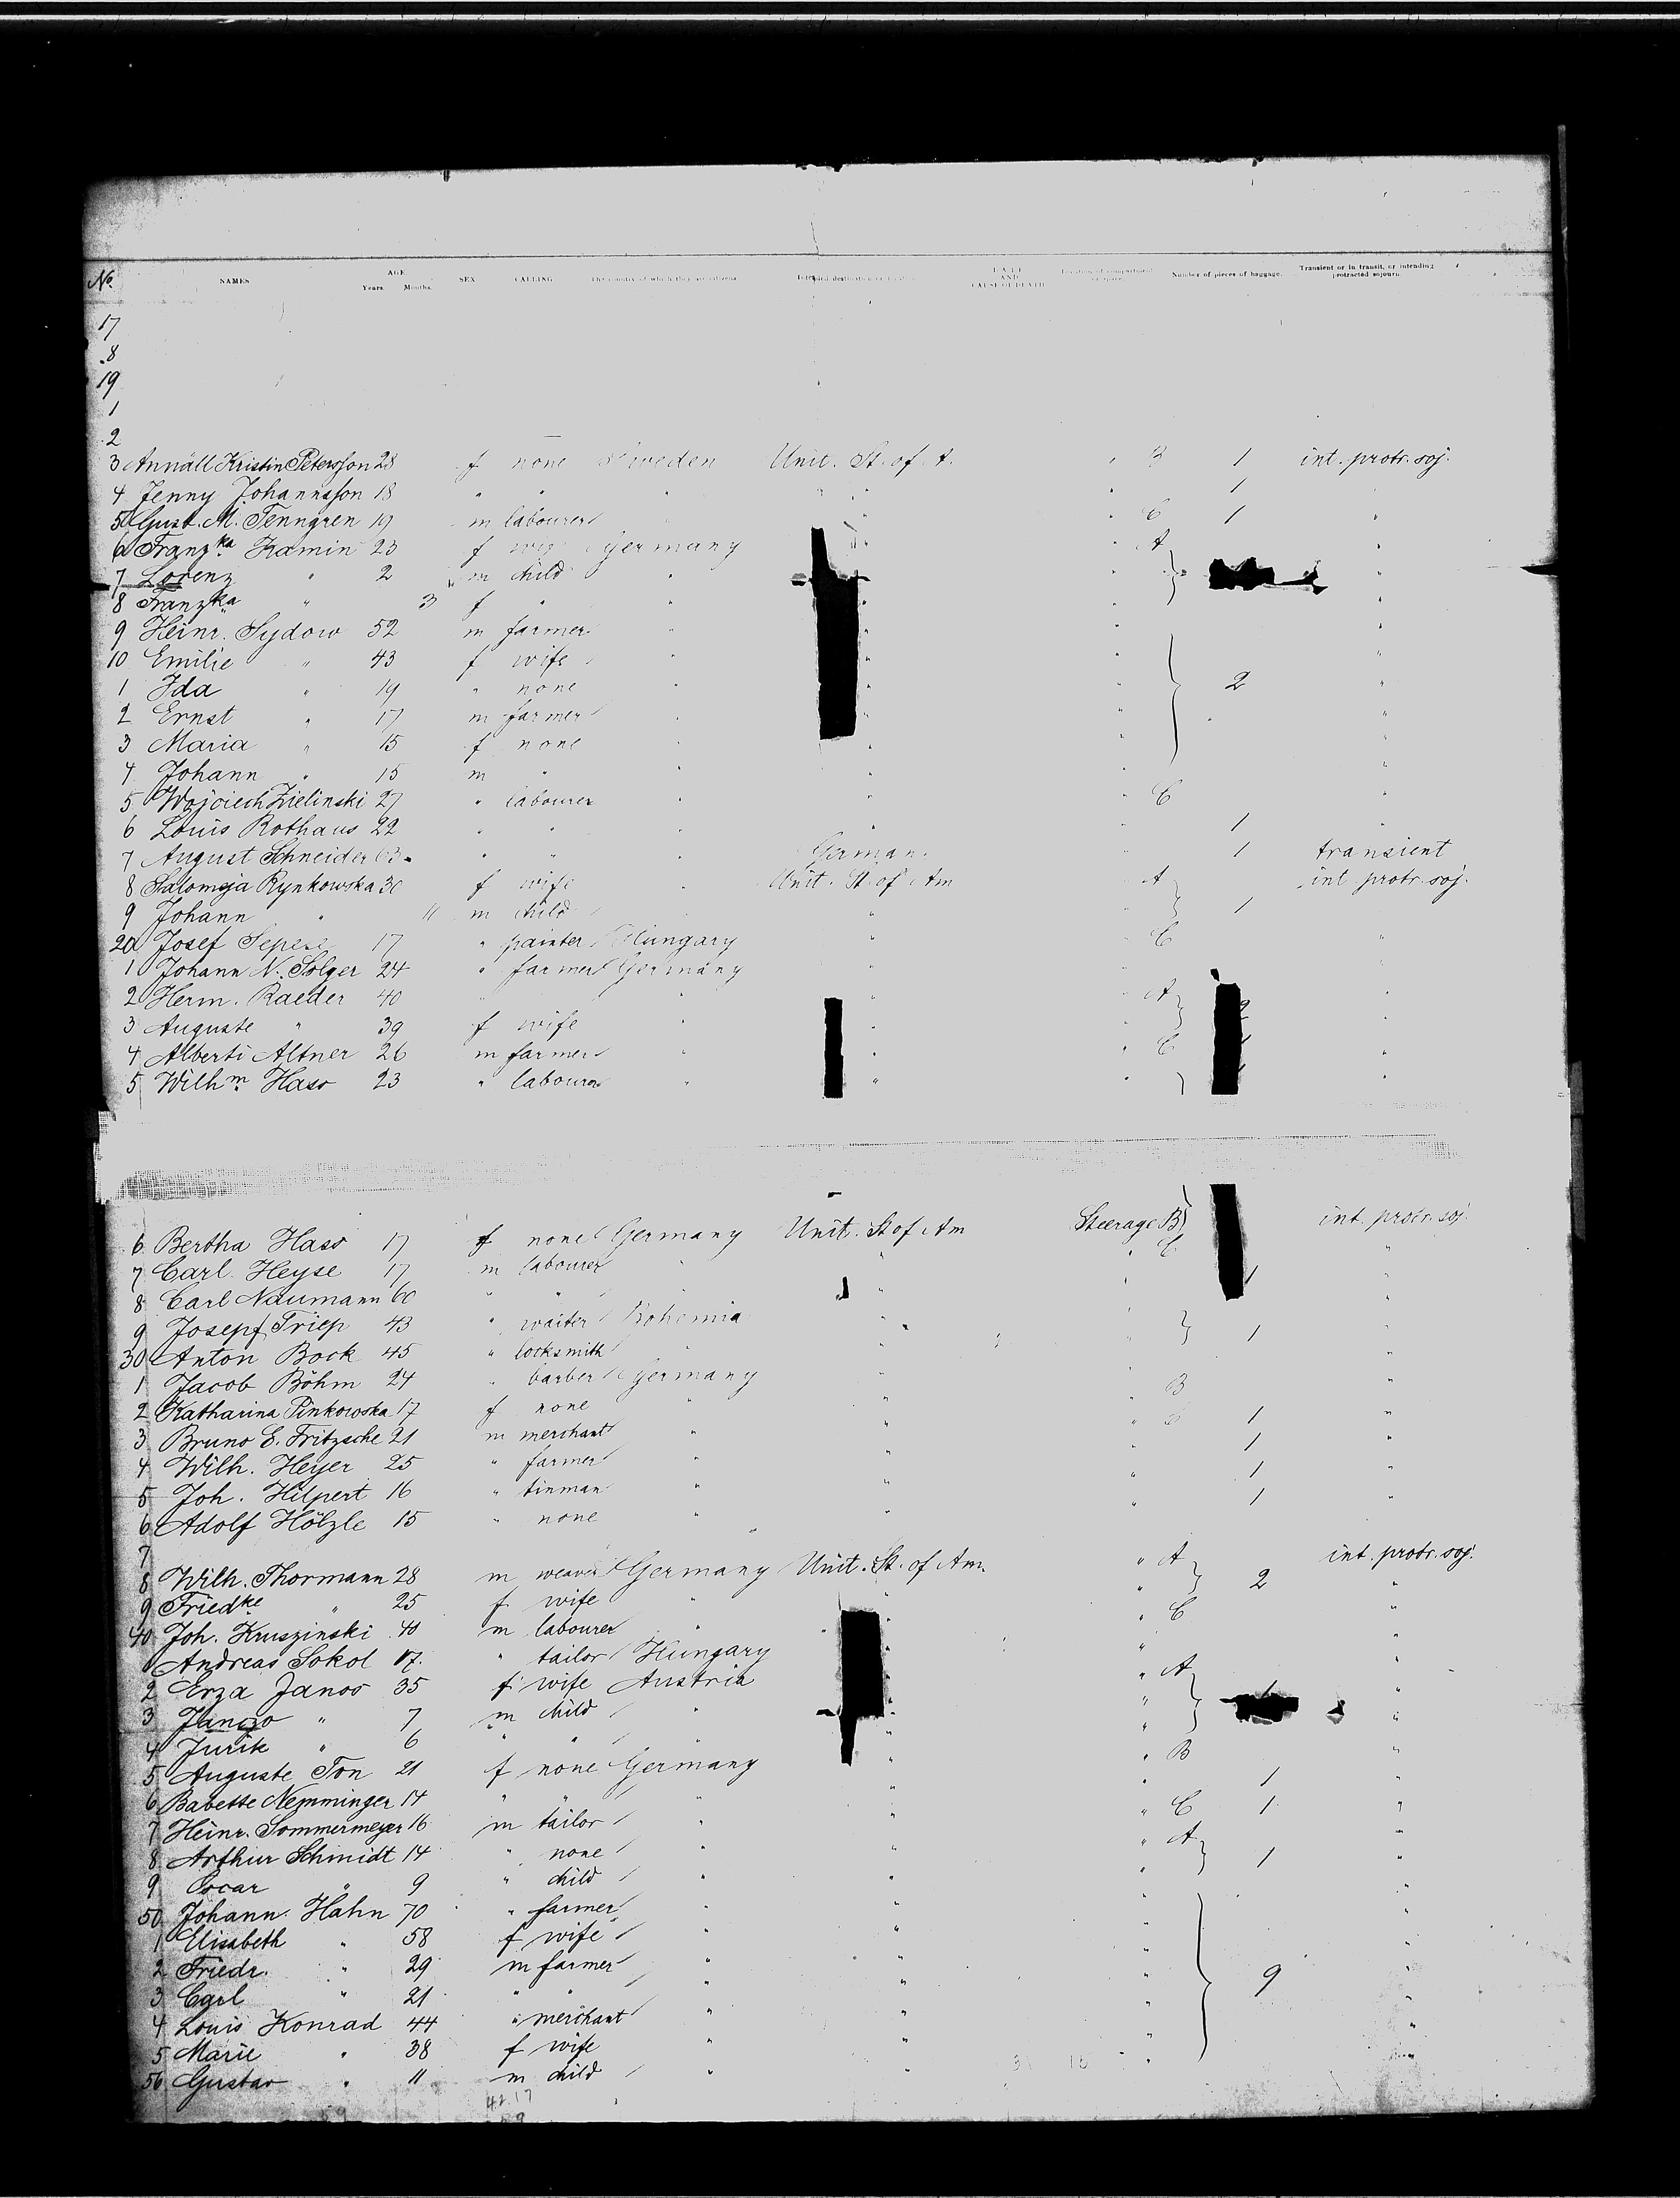 No. NAMES AGE Years. Months. SEX CALLING The country of which they are citizens Intended destination or location DATE AND CAUSE OF DEATH Location of compartment Number of pieces of baggage. Transient or in transit, or intending protracted sojourn.
17
8
19
1
2
3 Annäll Kristin Petersson 28 f none Sweden Unit. St. of A. " B 1 int. protr. soj.
4 Jenny Johannsson 18 " " " " " 1
5 Gust. M. Tenngren 19 m labourer " " C 1 "
6 Franzka Kamin 23 f Germany " " A "
7 Lorenz " 2 m child " " "
8 Franzka " 3 f " " " " "
9 Heinr. Sydow 52 m farmer " " "
10 Emilie " 43 f wife " " " "
1 Ida " 19 " none " " " 2 "
2 Ernst " 17 m farmer " " " "
3 Maria " 15 f none " " " "
4 Johann " 15 m " " " " "
5 Wojciech Zielinski 27 " labourer " " " C "
6 Louis Rothaus 22 " " " " " 1 "
7 August Schneider 63 " " " German. " 1 transient
8 Salomeja Rynkowska 30 f wife " Unit. St. of Am " A int protr. soj.
9 Johann " 11 m child " " 1
20 Josef Sepese 17 " painter Hungary " " C "
1 Johann N. Solger 24 " farmer Germany " "
2 Herm. Raeder 40 " " " " A "
3 Auguste " 39 f wife " " " "
4 Alberti Altner 26 m farmer " " " C "
5 Wilhm Hass 23 " labourer " " " "
6 Bertha Hass 17 f none Germany Unit. St of Am Steerage B int. protr. soj.
7 Carl Heyse 17 m labourer " " " C "
8 Carl Naumann 60 " " " " 1 "
9 Josepf Triep 43 " waiter Bohemia " " "
30 Anton Bock 45 " locksmith " " " 1 "
1 Jacob Böhm 24 " barber Germany " "
2 Katharina Pinkowska 17 f none " " " B "
3 Bruno E. Fritzsche 21 m merchant " " " C 1 "
4 Wilh. Heyer 25 " farmer " " " 1 "
5 Joh. Hilpert 16 " tinman " " " 1 "
6 Adolf Hölzle 15 " none " " " 1 "
7
8 Wilh. Thormann 28 m weaver Germany Unit. St. of Am. " A int. protr. soj.
9 Friedke " 25 f wife " " " 2 "
40 Joh. Kruszinski 40 m labourer " " " C "
Andreas Sokol 17. " tailor Hungary " " "
2 Erza Janos 35 f wife Austria " " A "
3 Janczo " 7 m child " " " "
4 Jurik " 6 " " " " " "
5 Auguste Ton 21 f none Germany " " B "
6 Babette Nemminger 14 " " " " " 1 "
7 Heinr. Sommermeyer 16 m tailor " " " C 1 "
8 Arthur Schmidt 14 " none " " " A "
9 Oscar " 9 " child " " " 1 "
50 Johann Hahn 70 " farmer " " " "
1 Elisabeth " 58 f wife " " " "
2 Friedr. " 29 m farmer " " " "
3 Carl " 21 " " " " " 9 "
4 Louis Konrad 44 " merchant " " " "
5 Marie " 38 f wife " " " "
56 Gustav " 11 m child " " "
42.17